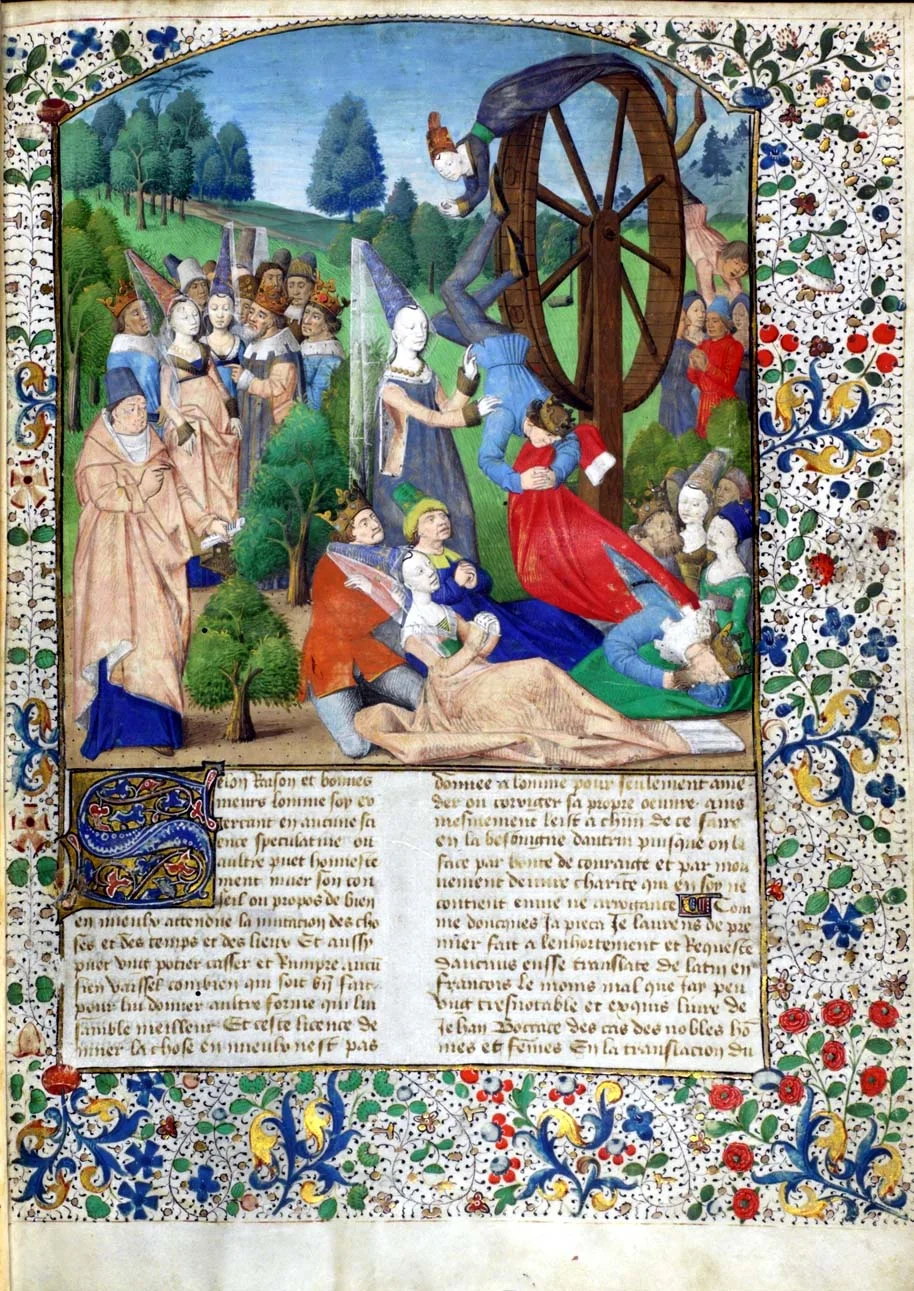 Selon Raison et bonnes
meurs lomme soy ex
ercant en aucune sci
ence speculatiue ou
aultre puet honneste
ment muer son con
seil ou propos de bien
en mieulx attendue la mutation des cho
ses et des temps et des lieux Et aussy
puet vng potier casser et Rumpre aucū
sien vaissel combien qui soit bn̄ fait
pour lui donner aultre forme qui lui
samble meilleur Et ceste licence de
muer la chose en mieulx nest pas
donnee a lomme pour seulement ame
der ou corriger sa propre oeuure ains
mesmement leist a chm̄ de ce faire
en la besoingne dautrui puisque on le
face par bonte de couraige et par mou
uement de charite qui en soy ne
contient enuie ne arrogance Com
me doncques Ja pieca Je laurens de pre
mier fait a lenhortement et Requeste
daucuns eusse translate de latin en
francois le moins mal que Jay peu
vng tresnotable et exquis liure de
Jehan Boccace des cas des nobles hō
mes et fēmes En la translacion du